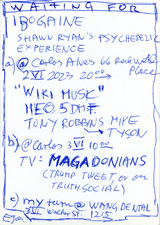 WAITING FOR
IBOGAINE
SHAWN RYAN'S PSYCHEDELIC
EXPERIENCE
a) @ Carlos Alves 66
Place
2 VI 2023 20:00
"WIKI MUSK"
TONY ROBBINS MIKE
TYSON
b) @ Carlos 3 VI 10:00
TV: MAGADONIANS
(TRUMP TWEET or on
TRUTH SOCIAL)
c) my turn @ WANG DENTAL
1215